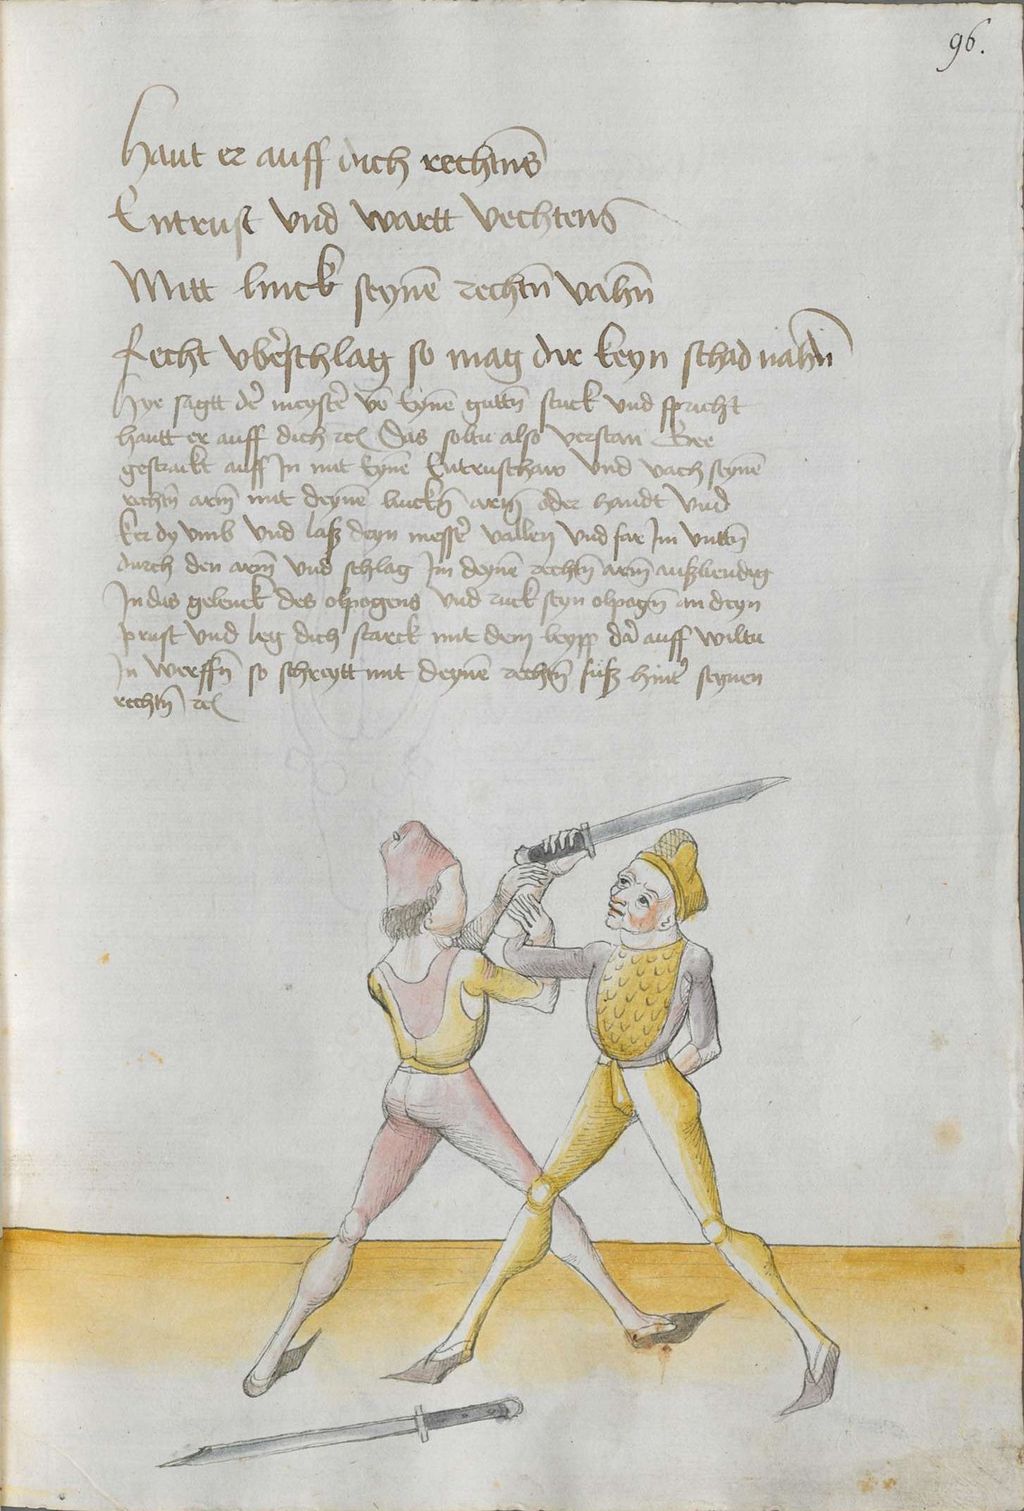 96.
Haut er auff dich rechtns
Entrust vnd wartt vechtens
Mitt linck seynē rechtn̄ vahn̄
Recht vberschlag so mag dir keyn schad nahn̄
Hye sagtt der meyster vō eynē guttn̄ stuck vnd spricht
hautt er auff dich ꝛc Das soltu also verstan Gee
gestrackt auff In mit eynē Entrusthaw vnd vach seynē
rechtn̄ arm̄ mit deynē linckn̄ arm̄ oder handt vnd
ker dy vmb vnd laß deyn messer vallen vnd far Im vnttn̄
durch den arm̄ vnd schlag Im deynē rechtn̄ arm̄ außbendig
In das gelenck des olpogens vnd ruck seyn olpogn̄ an deyn
prust vnd leg dich starck mit dem leyp dar auff wiltu
In werffn̄ so schreytt mit deynē rechtn̄ fuß hinter seynen
rechtn̄ ꝛc